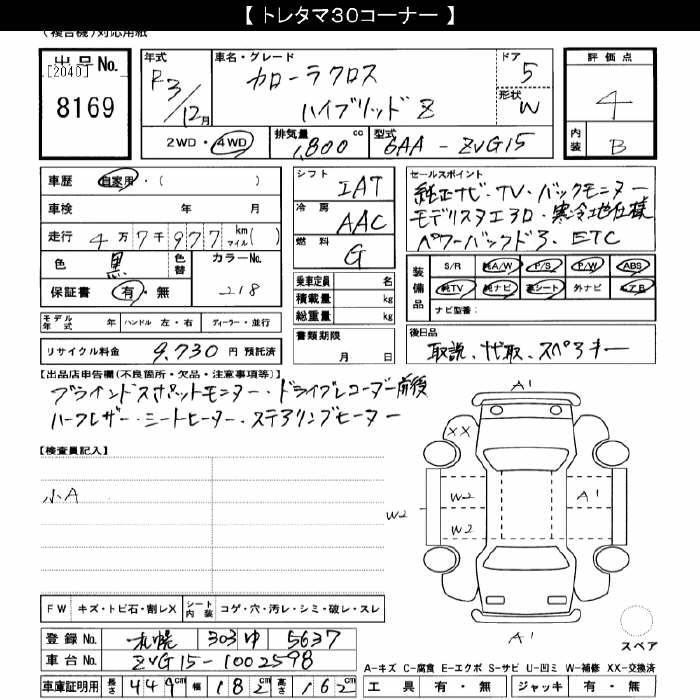 【 トレタマ30コーナー 】
(複合機)対応用紙
出品No.
[2040]
8169
年式
R3/12月
車名・グレード
カローラクロス
ハイブリッド Z
ドア
5
形状
W
評価点
4
内装
B
2WD・4WD
排気量
1,800 cc
型式
6AA - ZVG15
車歴 自家用・( )
車検 年 月
走行 4万7千977 km マイル( )
色 黒 色替 カラーNo. 218
保証書 有・無
シフト
IAT
冷房
AAC
燃料
G
乗車定員 名
積載量 kg
総重量 kg
セールスポイント
純正ナビ・TV・バックモニター
モデリスタエアロ・寒冷地仕様
パワーバックドア、ETC
装備品
S/R 純A/W P/S P/W ABS
純TV 純ナビ 革シート 外ナビ エアB
ナビ型番:
モデル年式 年 ハンドル 左・右 ディーラー・並行
リサイクル料金 9,730 円 預託済
書類期限
月 日
後日品
取説、代取、スペアキー
【出品店申告欄(不良箇所・欠品・注意事項等)】
ブラインドスポットモニター・ドライブレコーダー前後
ハーフレザー・シートヒーター・ステアリングヒーター
【検査員記入】
小A
A1
XX
W2
A1
W2
W2
A1
スペア
FW キズ・トビ石・割レX シート内装 コゲ・穴・汚レ・シミ・破レ・スレ
登録No. 札幌 303 ゆ 5637
車台No. ZVG15-1002598
車庫証明用 長さ 449cm 幅 182cm 高さ 162cm
A-キズ C-腐食 E-エクボ S-サビ U-凹ミ W-補修 XX-交換済
工具 有・無 ジャッキ 有・無